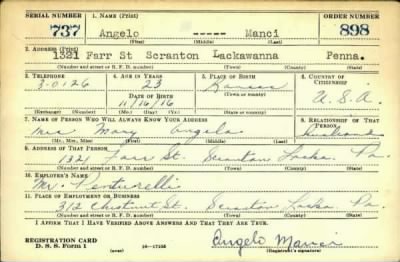 SERIAL NUMBER 1. NAME (Print) ORDER NUMBER
737 Angelo ----- Manci 898
(First) (Middle) (Last)
2. ADDRESS (Print)
1321 Farr St Scranton Lackawanna Penna.
(Number and street or R. F. D. number) (Town) (County) (State)
3. TELEPHONE 4. AGE IN YEARS 5. PLACE OF BIRTH 6. COUNTRY OF CITIZENSHIP
3-0126 23 Kansas
DATE OF BIRTH (Town or county) U.S.A.
11/16/16
(Exchange) (Number) (Mo.) (Day) (Yr.) (State or country)
7. NAME OF PERSON WHO WILL ALWAYS KNOW YOUR ADDRESS 8. RELATIONSHIP OF THAT PERSON
Mrs Mary Angelo
(Mr., Mrs., Miss) (First) (Middle) (Last)
9. ADDRESS OF THAT PERSON
1321 Farr St. Scranton Lacka. Pa.
(Number and street or R. F. D. number) (Town) (County) (State)
10. EMPLOYER'S NAME
Mr.
11. PLACE OF EMPLOYMENT OR BUSINESS
312 Chestnut St. Scranton Lacka. Pa.
(Number and street or R. F. D. number) (Town) (County) (State)
I AFFIRM THAT I HAVE VERIFIED ABOVE ANSWERS AND THAT THEY ARE TRUE.
REGISTRATION CARD
D. S. S. Form 1 (over) 16—17105 Angelo Manci
(Registrant's signature)